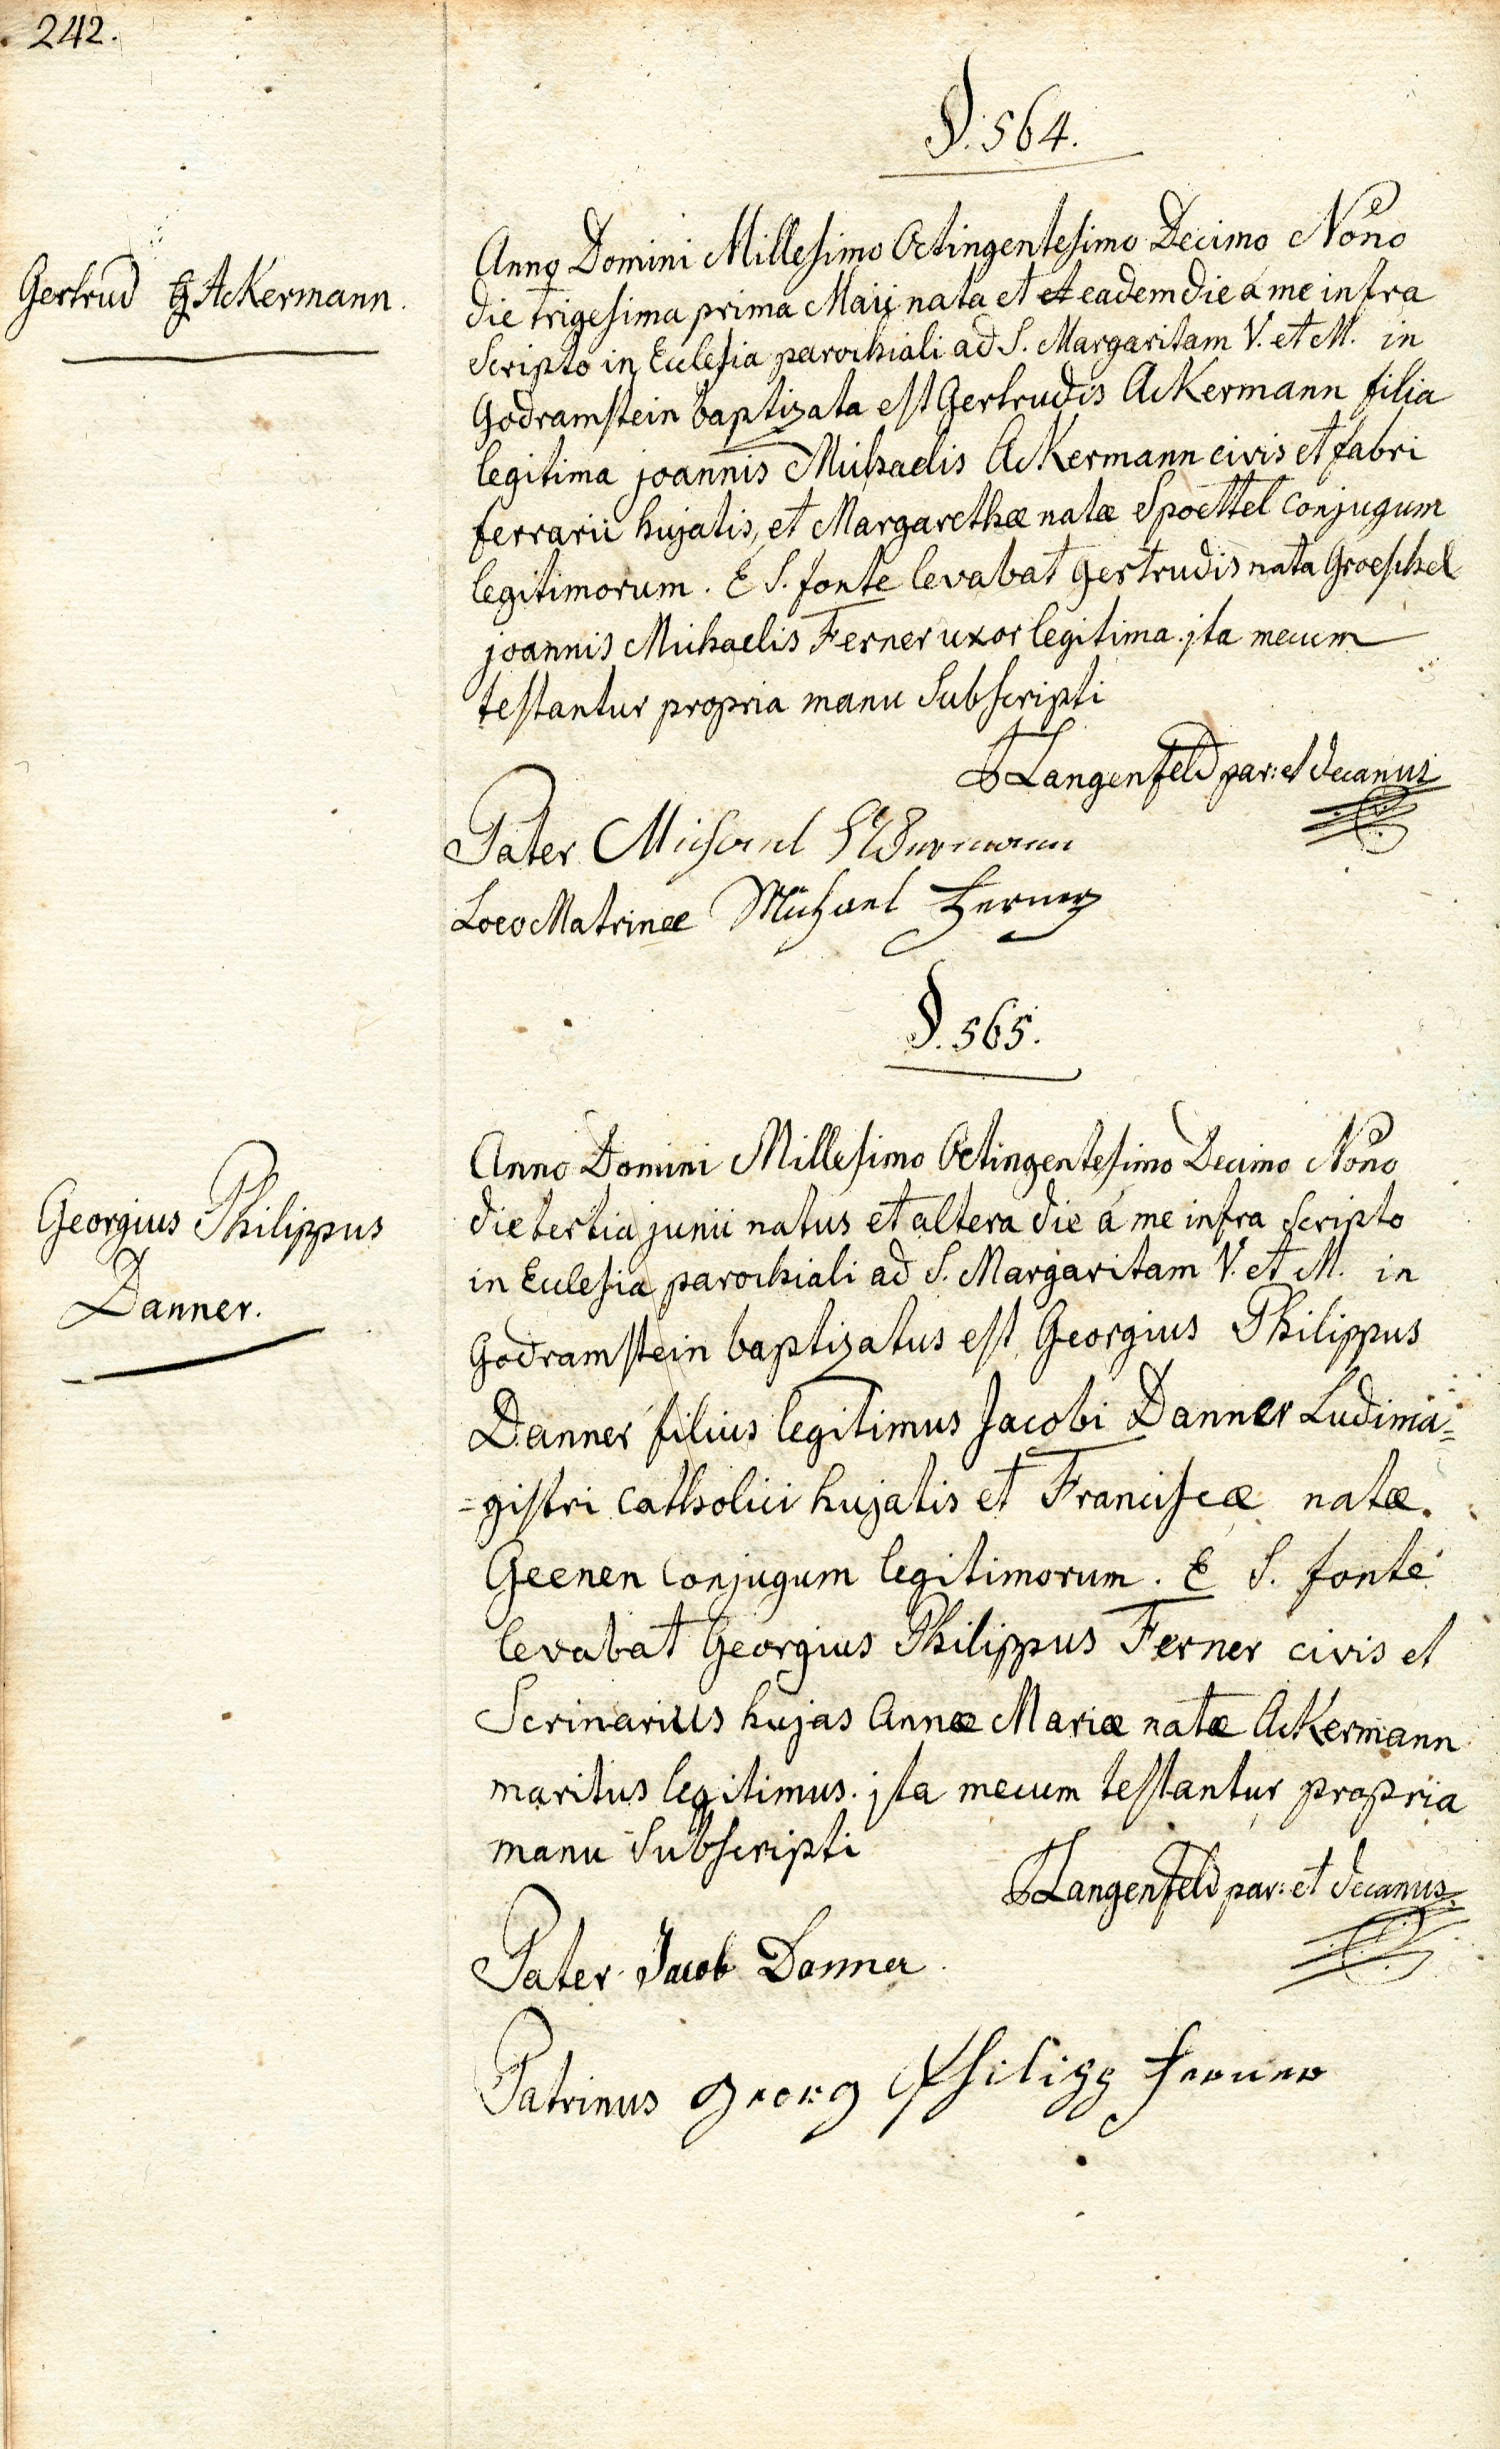 242.
§. 564.
Gertrud Ackermann.
Anno Domini Millesimo Octingentesimo Decimo Nono
die trigesima prima Maii nata et et eadem die a me infra
scripto in Ecclesia parochiali ad S. Margaritam V. et M. in
Godramstein baptizata est Gertrudis Ackermann filia
legitima joannis Michaelis Ackermann civis et fabri
ferrarii hujatis, et Margarethæ natæ Spoettel conjugum
legitimorum. E S. fonte levabat Gertrudis nata Groeschel
joannis Michaelis Ferner uxor legitima. jta mecum
testantur propria manu subscripti
Langenfeld par: et decanus
Pater Michael Ackermann
Loco Matrinæ Michael Ferner
§. 565.
Georgius Philippus
Danner.
Anno Domini Millesimo Octingentesimo Decimo Nono
die tertia junii natus et altera die a me infra scripto
in Ecclesia parochiali ad S. Margaritam V. et M. in
Godramstein baptizatus est Georgius Philippus
Danner filius legitimus Jacobi Danner Ludima=
=gistri catholici hujatis et Franciscæ natæ
Geenen conjugum legitimorum. E S. fonte
levabat Georgius Philippus Ferner civis et
Scrinarius hujas Annæ Mariæ natæ Ackermann
maritus legitimus. jta mecum testantur propria
manu subscripti
Langenfeld par: et decanus.
Pater Jacob Danner
Patrinus Georg Philipp Ferner